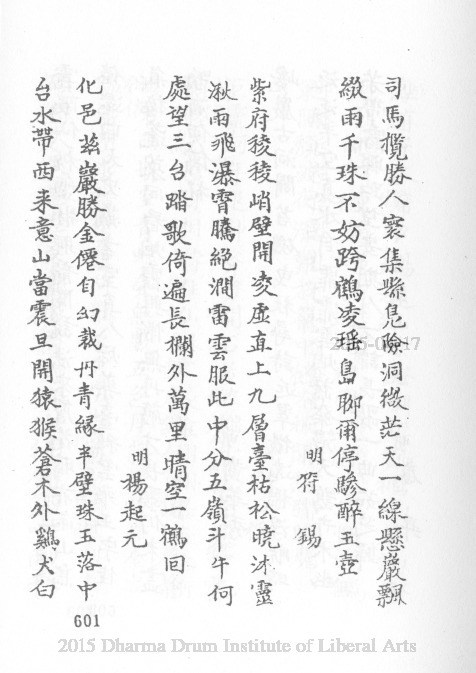 司馬攬勝人寰集縣鳧險洞微茫天一線懸巖飄
綴雨千珠不妨跨鶴凌瑤島聊爾停驂醉玉壺
明符錫
紫府稜稜峭壁開凌虛直上九層臺枯松曉沐靈
湫雨飛瀑霄騰絕澗雷雲服此中分五嶺斗牛何
處望三台踏歌倚遍長欄外萬里晴空一鶴回
明楊起元
化邑茲巖勝金僊自幻裁丹青緣半壁珠玉落中
台水帶西來意山當震旦開猿猴蒼木外鷄犬白
601
2015 Dharma Drum Institute of Liberal Arts